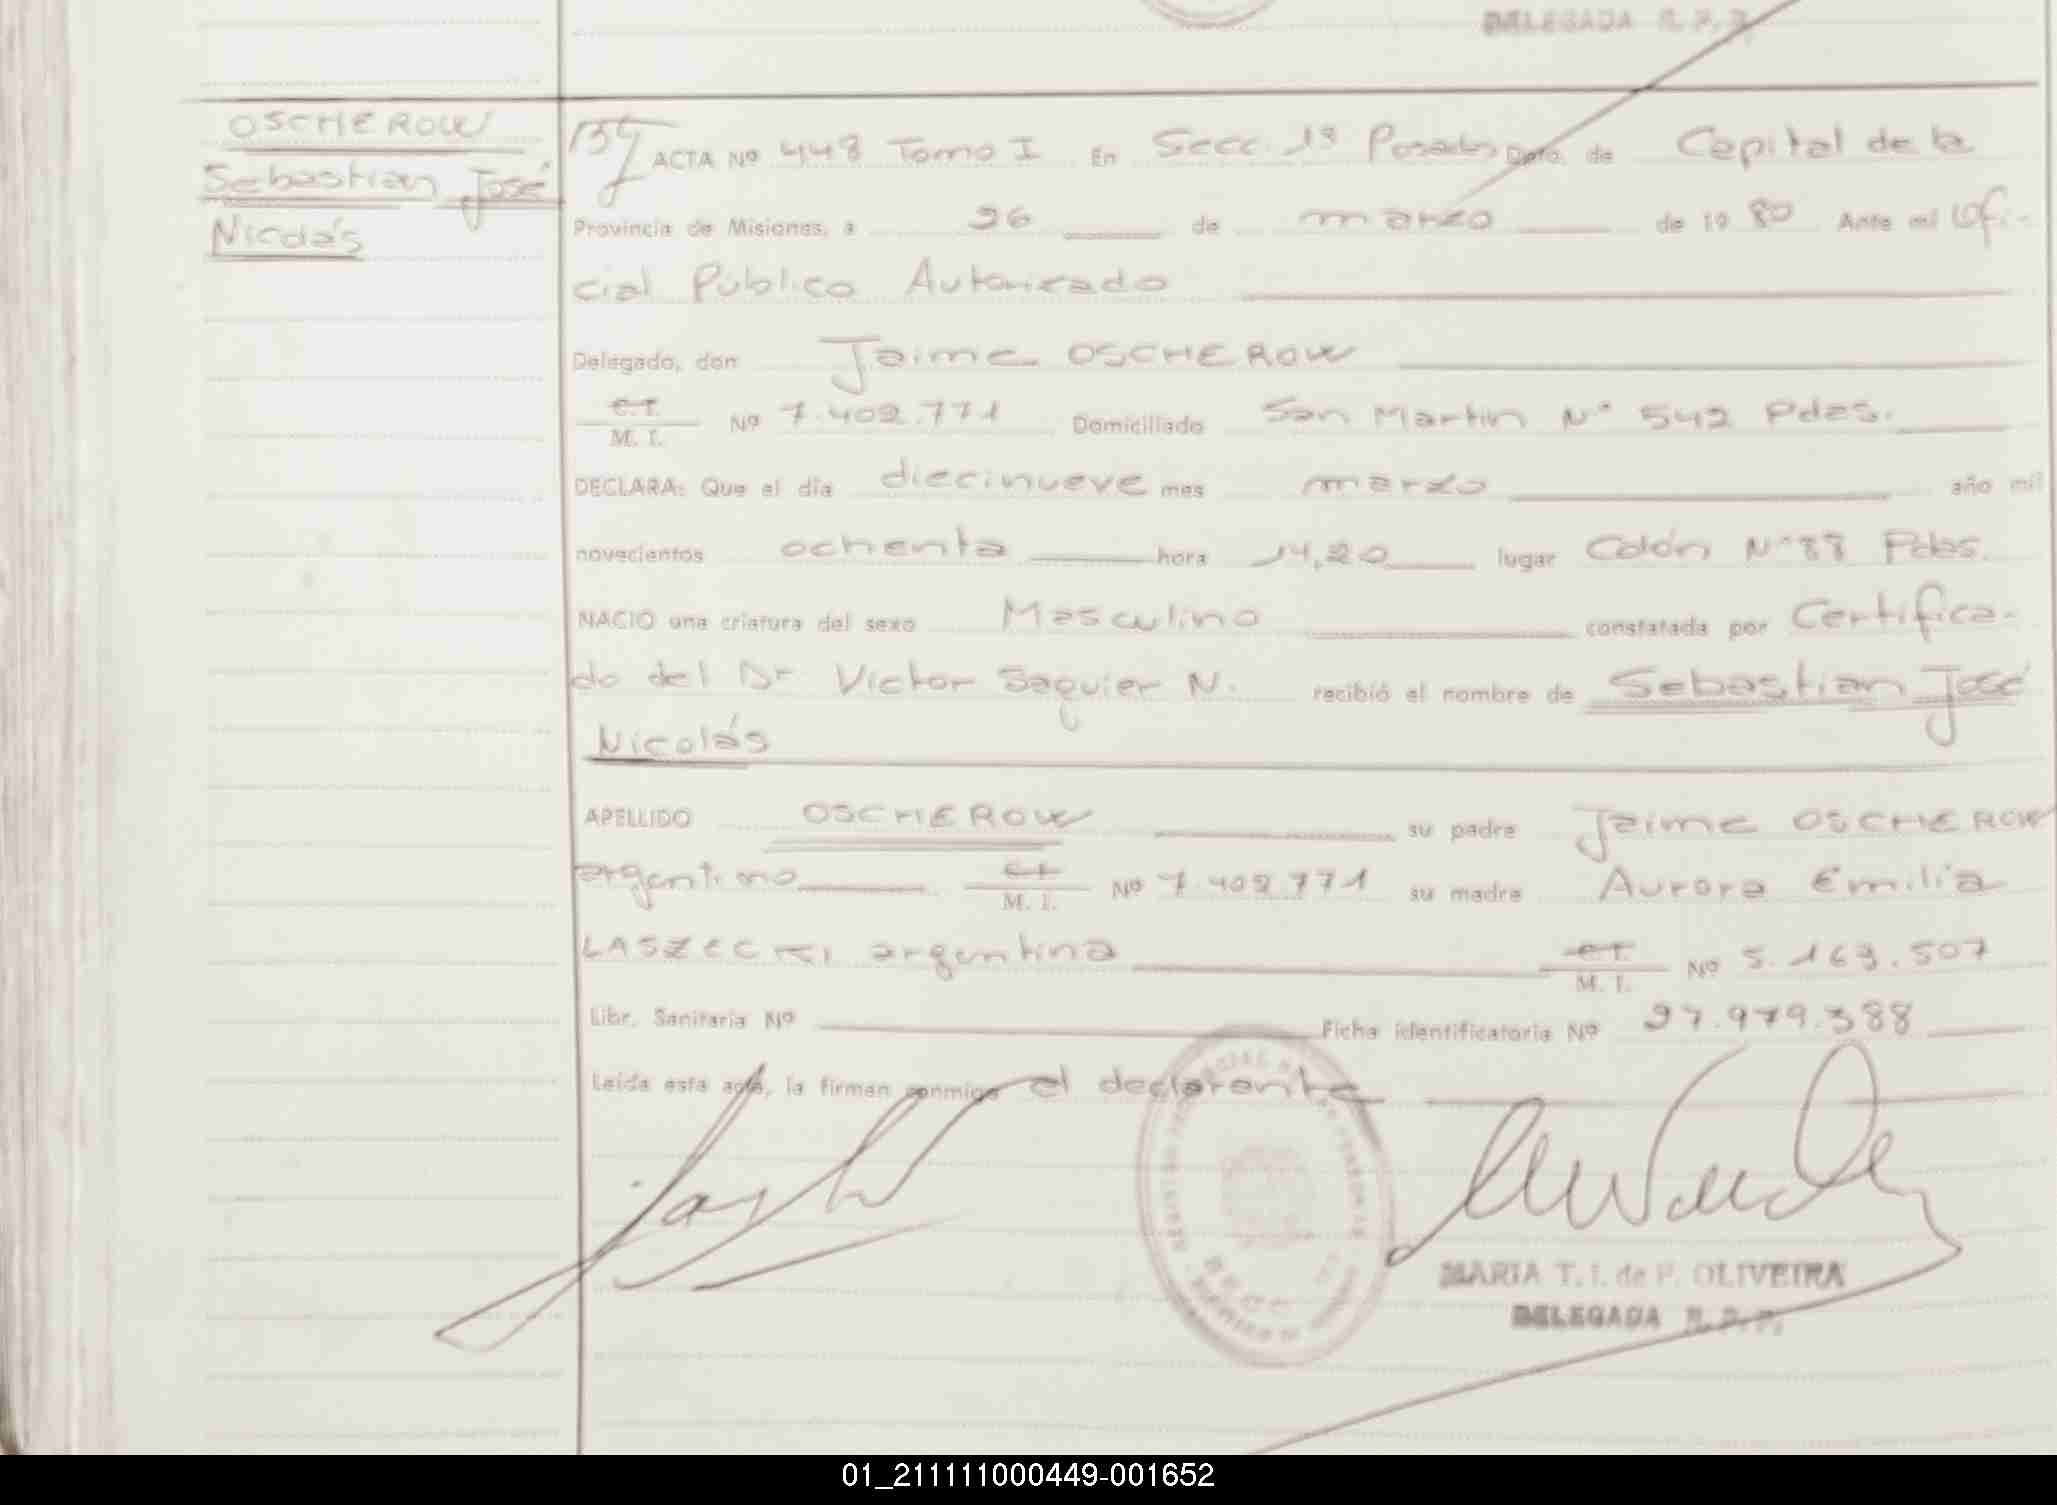 DELEGADA R. P. P.
OSCHEROW
Sebastian José
Nicolás
ACTA Nº 448 Tomo I En Secc. 1ª Posadas Dpto. de Capital de la
Provincia de Misiones, a 26 de marzo de 19 80 Ante mi Ofi-
cial Público Autorizado
Delegado, don Jaime OSCHEROW
C.I.
M. I. Nº 7.402.771 Domiciliado San Martin Nº 542 Pdas.
DECLARA: Que el día diecinueve mes marzo año mil
novecientos ochenta hora 14,20 lugar Colón Nº 88 Pdas.
NACIO una criatura del sexo Masculino constatada por Certifica-
do del Dr Victor Saguier N. recibió el nombre de Sebastian José
Nicolás
APELLIDO OSCHEROW su padre Jaime OSCHEROW
argentino C.I.
M. I. Nº 7.402.771 su madre Aurora Emilia
LASZECKI argentina C.I.
M. I. Nº 5.169.507
Libr. Sanitaria Nº Ficha identificatoria Nº 27.979.388
Leída esta acta, la firman conmigo el declarante
MARIA T. I. de P. OLIVEIRA
DELEGADA R. P. P.
01_211111000449-001652